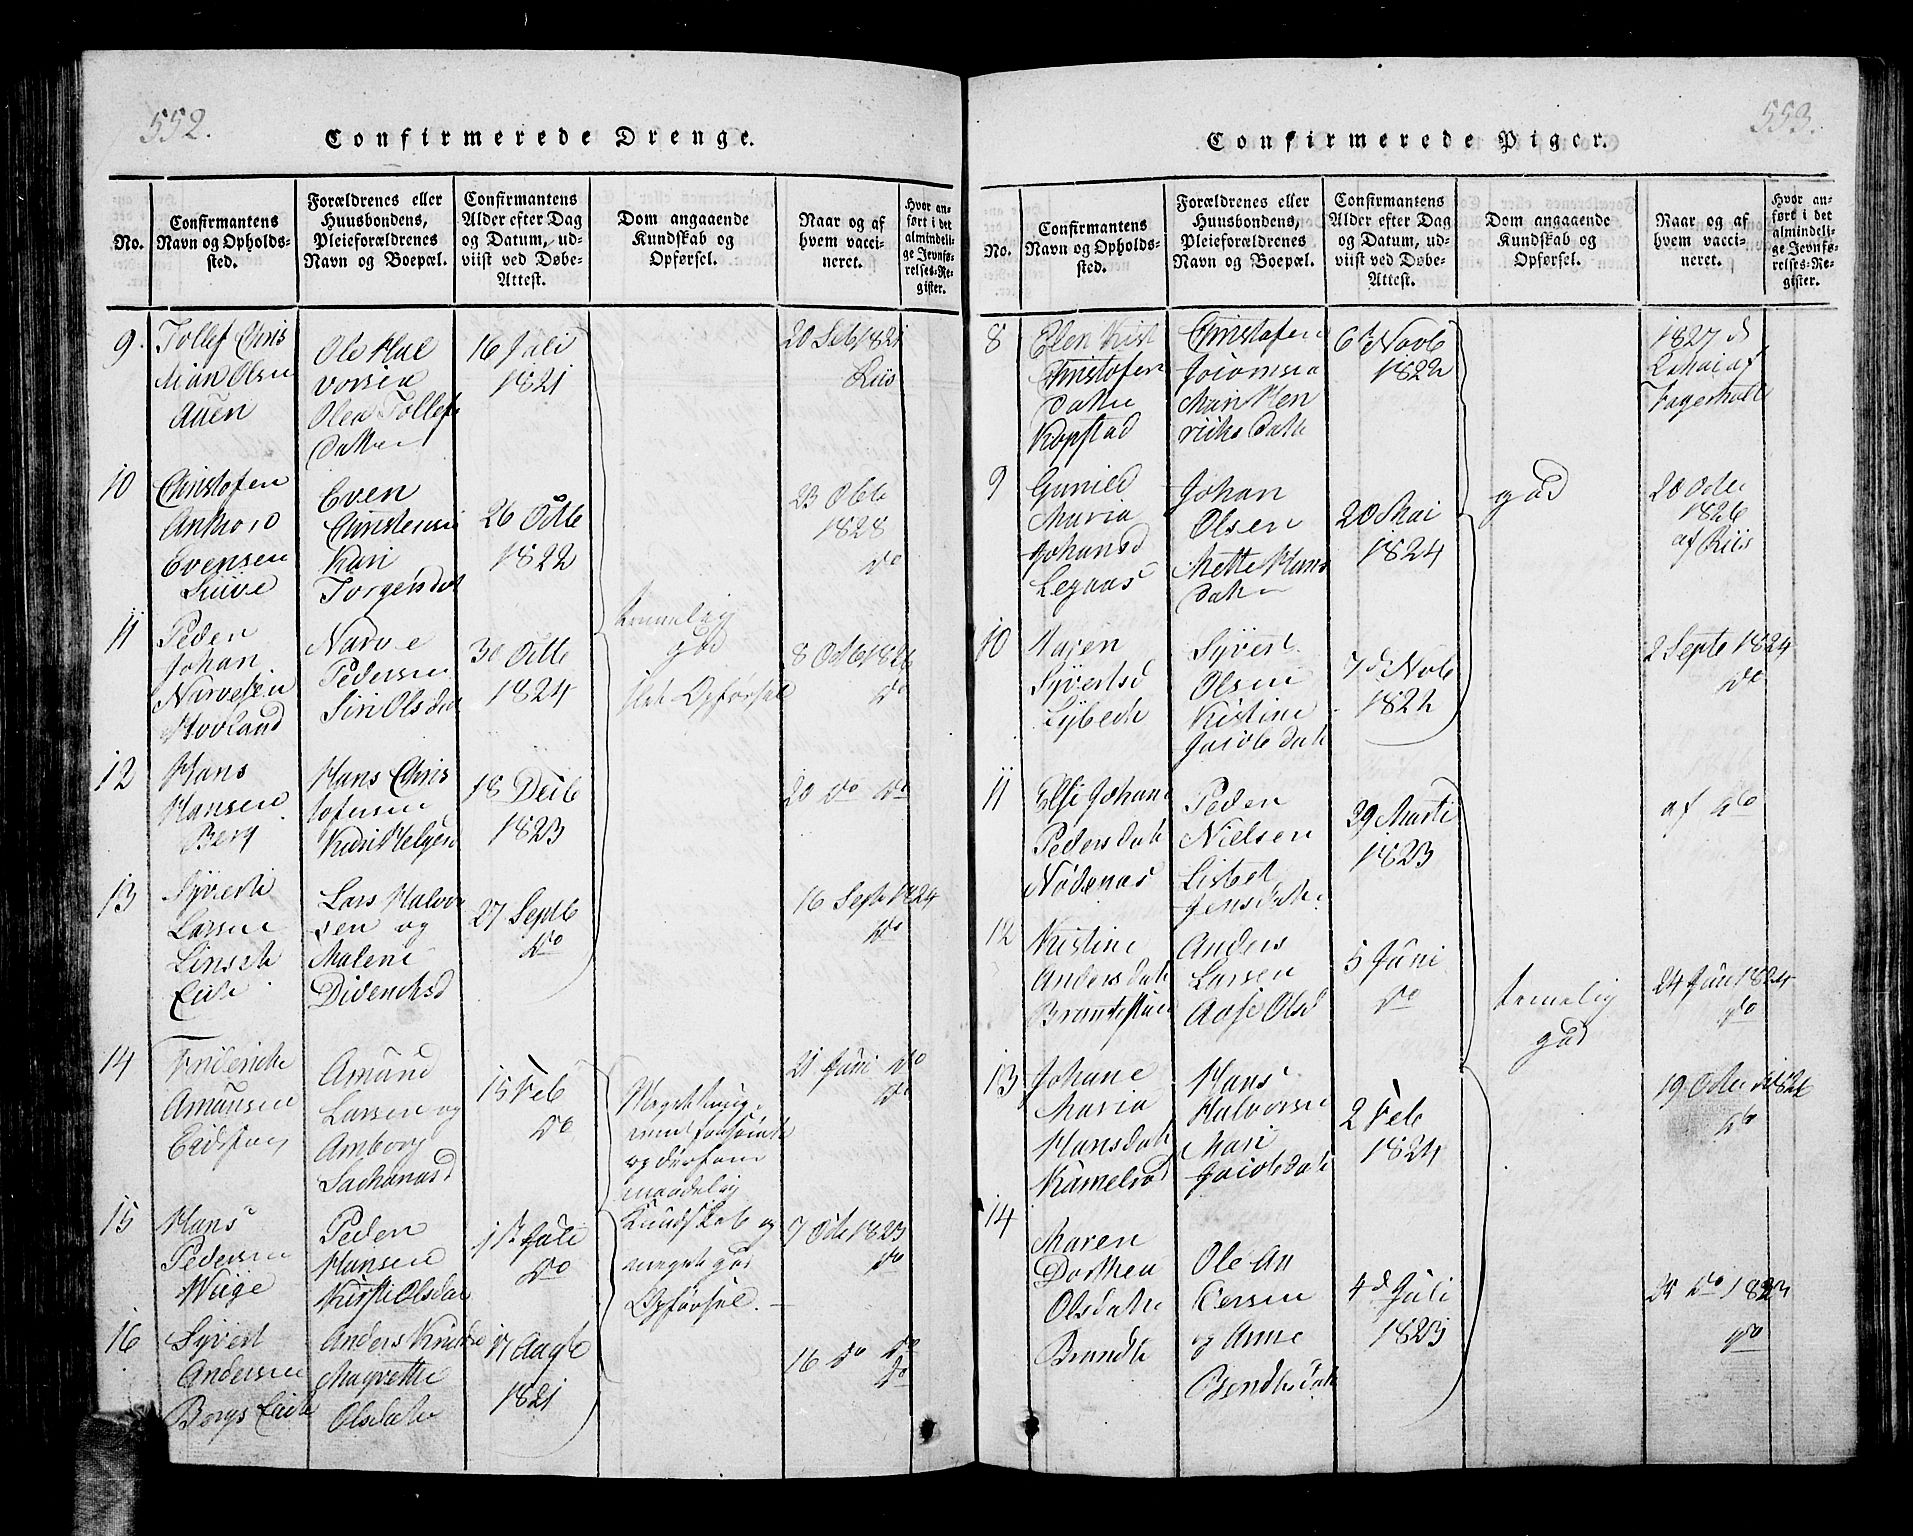 552.
Confirmerede Drenge.
No.
Confirmantens
Navn og Opholds-
sted.
Forældrenes eller
Huusbondens,
Pleieforældrenes
Navn og Boepæl.
Confirmantens
Alder efter Dag
og Datum, ud-
viist ved Døbe-
Attest.
Dom angaaende
Kundskab og
Opførsel.
Naar og af
hvem vacci-
neret.
Hvor an-
ført i det
almindeli-
ge Jevnfø-
relses-Re-
gister.
9.
Tollef Chris
tian Olsen
Auen
Ole Hal
vorsen
Olea Tollefs
Datter
16 Juli
1821
20 Sep 1821
Riis
10
Christofen
Evensen
Even
Christensen
Kari
Torgersdat
26 Octb
1822
23 Octb
1828
do
11
Peder
Johan
Narvesen
Hovland
Narve
Pedersen
Siri Olsdat
30 Octb
1824
temelig
god
slet Opførsel
8 Octb 1826
do
12
Hans
Hansen
Berg
Hans Chris
tofersen
Kari Helgesd
18 Decb
1823
20 do do
13
Syvert
Larsen
Eide
Lars Halvor
sen og
Malene
Diderichsd
27 Septb
do
16 Sept 1824
do
14
Friderich
Amunsen
Eidstang
Amund
Larsen og
Amborg
Sachariasd
15 Feb
do
21 Juni do
do
maadelig
Kundskab og
meget god
Opførsel.
15
Hans
Pedersen
Weige
Peder
Hansen
Kirsti Olsdat
1st Juli
do
7 Octb 1823
do
16
Syvert
Andersen
Borgs Eide
Anders
Magrethe
Olsdatter
17 Augb
1821
16 do do
do
553.
Confirmerede Piger.
No.
Confirmantens
Navn og Opholds-
sted.
Forældrenes eller
Huusbondens,
Pleieforældrenes
Navn og Boepæl.
Confirmantens
Alder efter Dag
og Datum, ud-
viist ved Døbe-
Attest.
Dom angaaende
Kundskab og
Opførsel.
Naar og af
hvem vacci-
neret.
Hvor an-
ført i det
almindeli-
ge Jevnfø-
relses-Re-
gister.
8
Elen Kist
Christofer
datter
Kopstad
Christofer
Mari Hen
richs Datt
6 d Novb
1822
1827 d
2 Mai af
Fagerholt
9
Gunild
Maria
Johansd
Legaas
Johan
Olsen
Mette Hans
datter
20 Mai
1824
god
20 Octb
1826
af Riis
10
Maren
Syvertsd
Lybech
Syvert
Olsen
Kistine
Jacobs dat
7 d Novb
1822
2 Septb 1824
do
11
Else Johane
Pedersdat
Nødenæs
Peder
Nielsen
Lisbet
Jensdatt.
29 Marti
1823
af do
12
Kistine
Andersdat
Anders
Larsen
Aase Olsd
5 Juni
do
temelig
god
24 Juni 1824
do
13
Johane
Maria
Hansdat
Kamelrød
Hans
Halvorsen
Mari
Jacobsdat
2 Feb
1824
19 Octb 1826
do
14
Maren
Dorthea
Olsdatter
Ole An
dersen
og Anne
Bendtsdat
4 d Juli
1823
25 do 1823
do